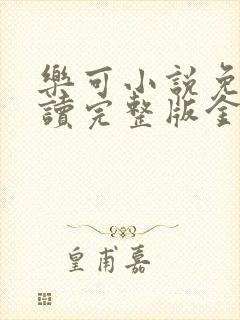 樂可小說免
讀完整版全
皇甫嘉